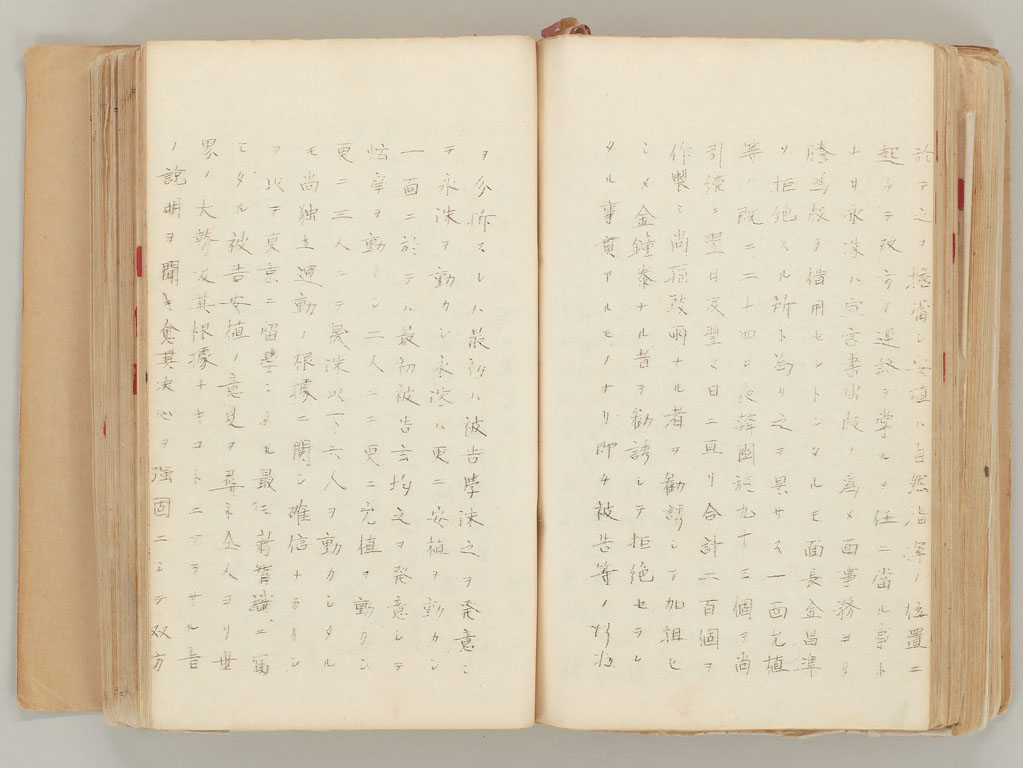 於テ之ヲ擔當シ安植ハ自然治寧ノ位置ニ
起チテ双方ノ連絡ヲ掌ルノ任ニ當ル事ト
ナリ永洙ハ宣言書出版ノ為メ面事務ヨリ
謄寫版ヲ借用セントシタルモ面長金昌準
ノ拒絶スル所ト為リ之ヲ果サス一面允植
等ハ既ニ二十四日夜韓國旗九十三個ヲ尚
引續キ翌日及翌々日ニ亘リ合計二百個ヲ
作製シ尚 ナル者ヲ勸誘シテ加担セ
シメ金鐘泰ナル者ヲ勸誘シテ拒絶セラレ
タル事實アルモノナリ即チ被告等ノ行為
ヲ分拆スレハ最初ハ被告學洙之ヲ発意シ
テ永洙ヲ動カシ永洙ハ更ニ安植ヲ動カシ
一面ニ於テハ最初被告玄均之ヲ発意シテ
炫 ヲ動カシ二人ニテ更ニ允植ヲ動カシ
更ニ三人ニテ晟洙以下六人ヲ動カシタル
モ尚独立運動ノ根據ニ関シ確信ナカリシ
ヲ以テ東京ニ留學シタル最モ新智識ニ富
ミタル被告安植ノ意見ヲ尋ネ仝人ヨリ世
界ノ大勢及其根據ナキコトニアラサル旨
ノ説明ヲ聞キ愈其決心ヲ強固ニシテ双方